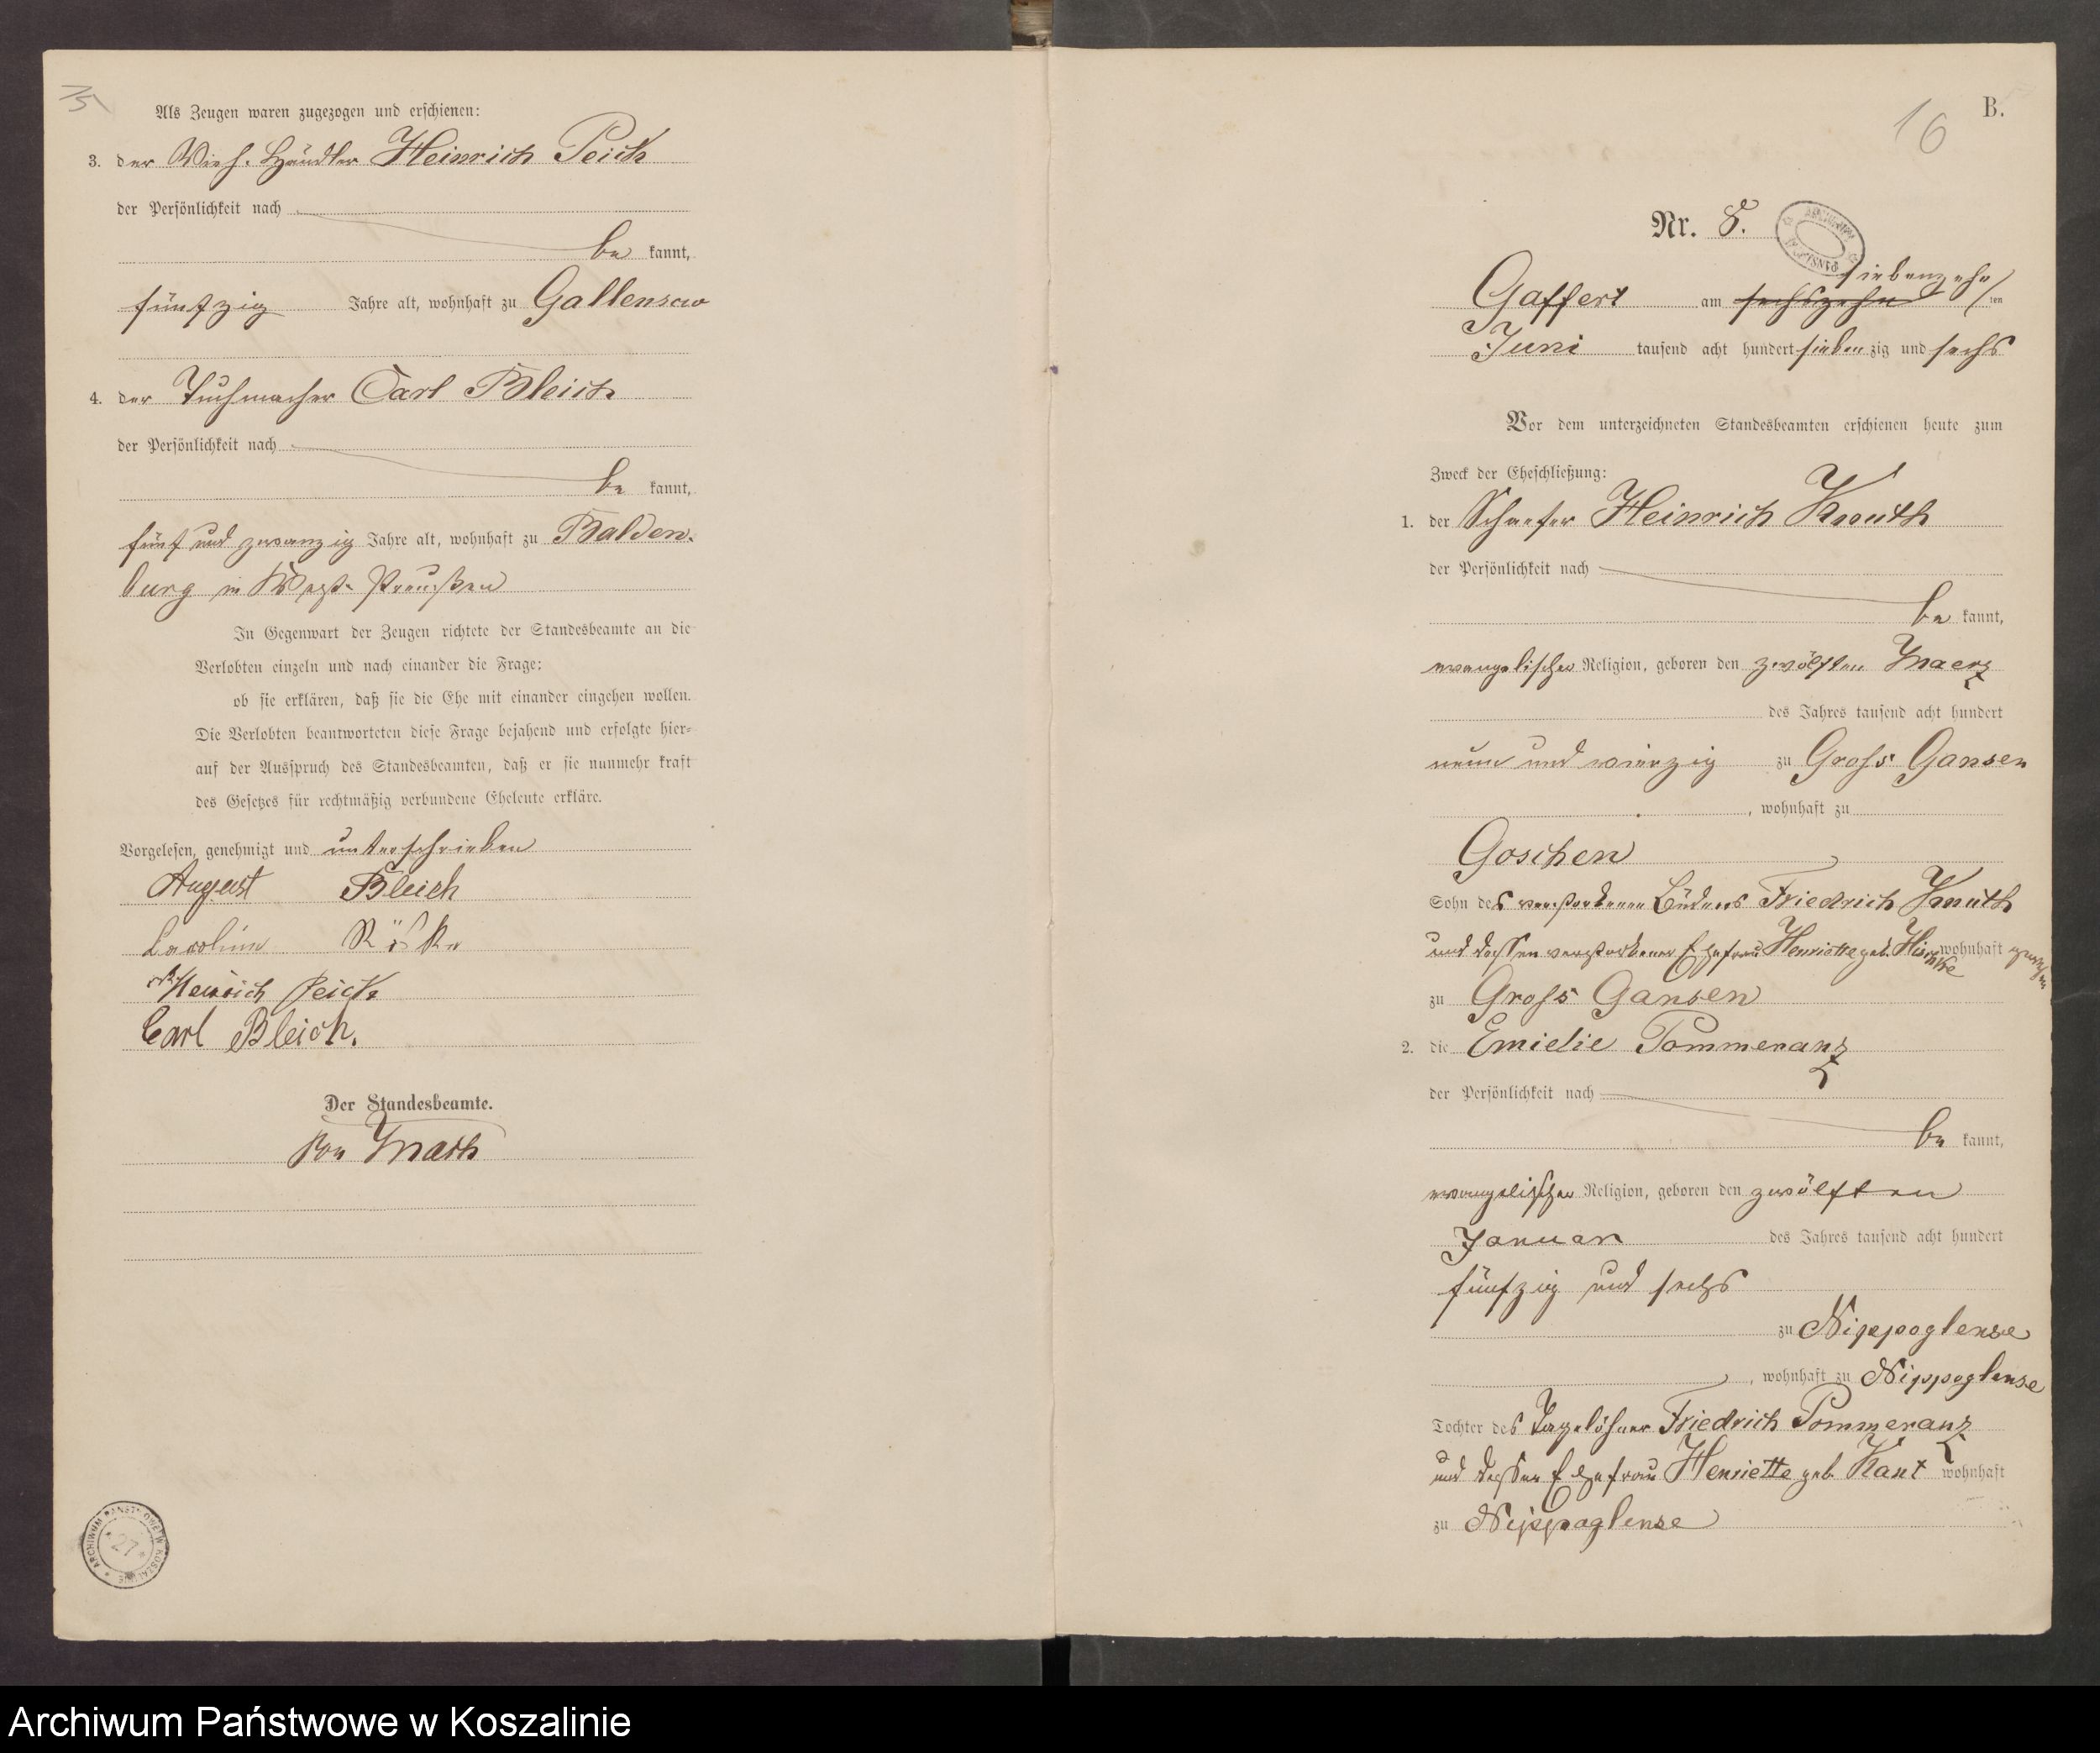 Als Zeugen waren zugezogen und erschienen:
3. der Vieh-Händler Heinrich Peick
der Persönlichkeit nach
be kannt,
fünfzig Jahre alt, wohnhaft zu Gallensow
4. der Tuchmacher Carl Bleich
der Persönlichkeit nach
be kannt,
fünf und zwanzig Jahre alt, wohnhaft zu Balden-
burg in West-Preußen
In Gegenwart der Zeugen richtete der Standesbeamte an die
Verlobten einzeln und nach einander die Frage:
ob sie erklären, daß sie die Ehe mit einander eingehen wollen.
Die Verlobten beantworteten diese Frage bejahend und erfolgte hier-
auf der Ausspruch des Standesbeamten, daß er sie nunmehr kraft
des Gesetzes für rechtmäßig verbundene Eheleute erkläre.
Vorgelesen, genehmigt und unterschrieben
August Bleich
Heinrich Peick
Carl Bleich.
Der Standesbeamte.
von
ARCHIWUM PAŃSTWOWE W KOSZALINIE
27
16
B.
Nr. 8.
siebenzehn
Gaffert am sechszehn ten
Juni tausend acht hundert sieben zig und sechs
Vor dem unterzeichneten Standesbeamten erschienen heute zum
Zweck der Eheschließung:
1. der Schaefer Heinrich Knuth
der Persönlichkeit nach
be kannt,
evangelischer Religion, geboren den zwölften Maerz
des Jahres tausend acht hundert
neun und vierzig zu Gross Gansen
, wohnhaft zu
Goschen
Sohn des verstorbenen Büdners Friedrich Knuth
und dessen verstorbener Ehefrau Henriette geb. wohnhaft gewesen
zu Gross Gansen
2. die Emielie Pommeranz
der Persönlichkeit nach
be kannt,
evangelischer Religion, geboren den zwölften
Januar des Jahres tausend acht hundert
fünfzig und sechs
zu Nippoglense
, wohnhaft zu Nippoglense
Tochter des Tagelöhner Friedrich Pommeranz
und dessen Ehefrau Henriette geb. Kant wohnhaft
zu Nippoglense
Archiwum Państwowe w Koszalinie